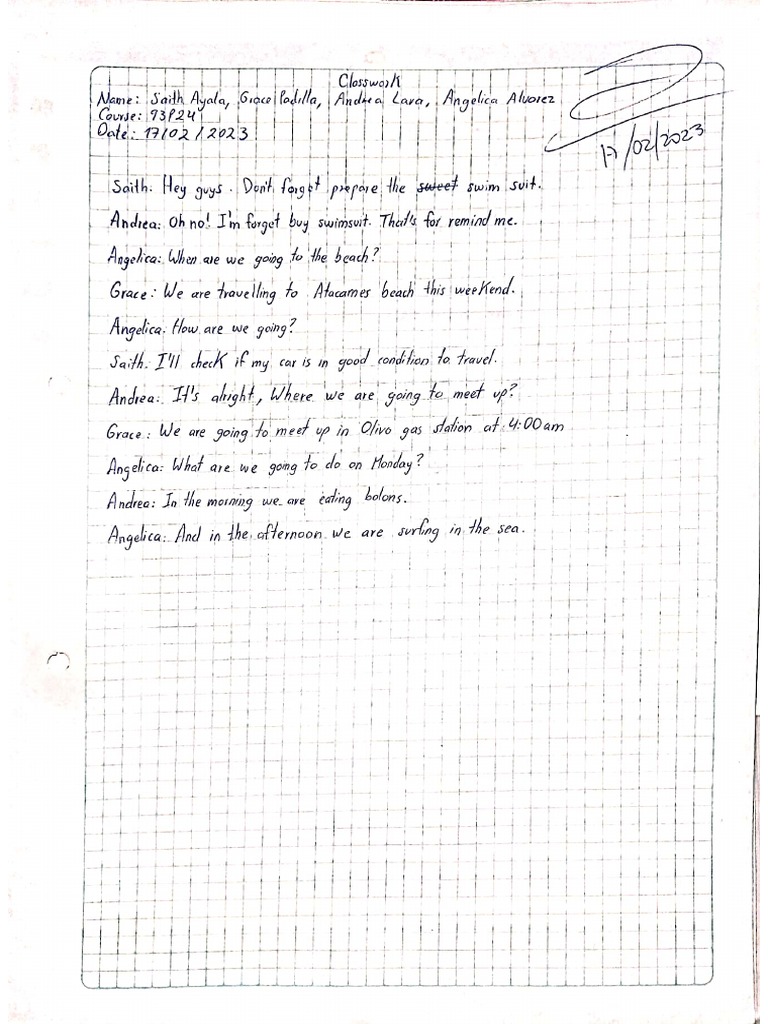 Classwork
Name: Saith Ayala, Grace Padilla, Andrea Lara, Angelica Alvarez
Course: 93P24
Date: 17/02/2023
17/02/2023
Saith. Hey guys. Don't forget prepare the sweet swim suit.
Andrea: Oh no! I'm forget buy swimsuit. That's for remind me.
Angelica: When are we going to the beach?
Grace: We are travelling to Atacames beach this weekend.
Angelica: How are we going?
Saith. I'll check if my car is in good condition to travel.
Andrea: It's alright, Where we are going to meet up?
Grace: We are going to meet up in Olivo gas station at 4:00am
Angelica: What are we going to do on Monday?
Andrea: In the morning we are eating bolons.
Angelica: And in the afternoon we are surfing in the sea.